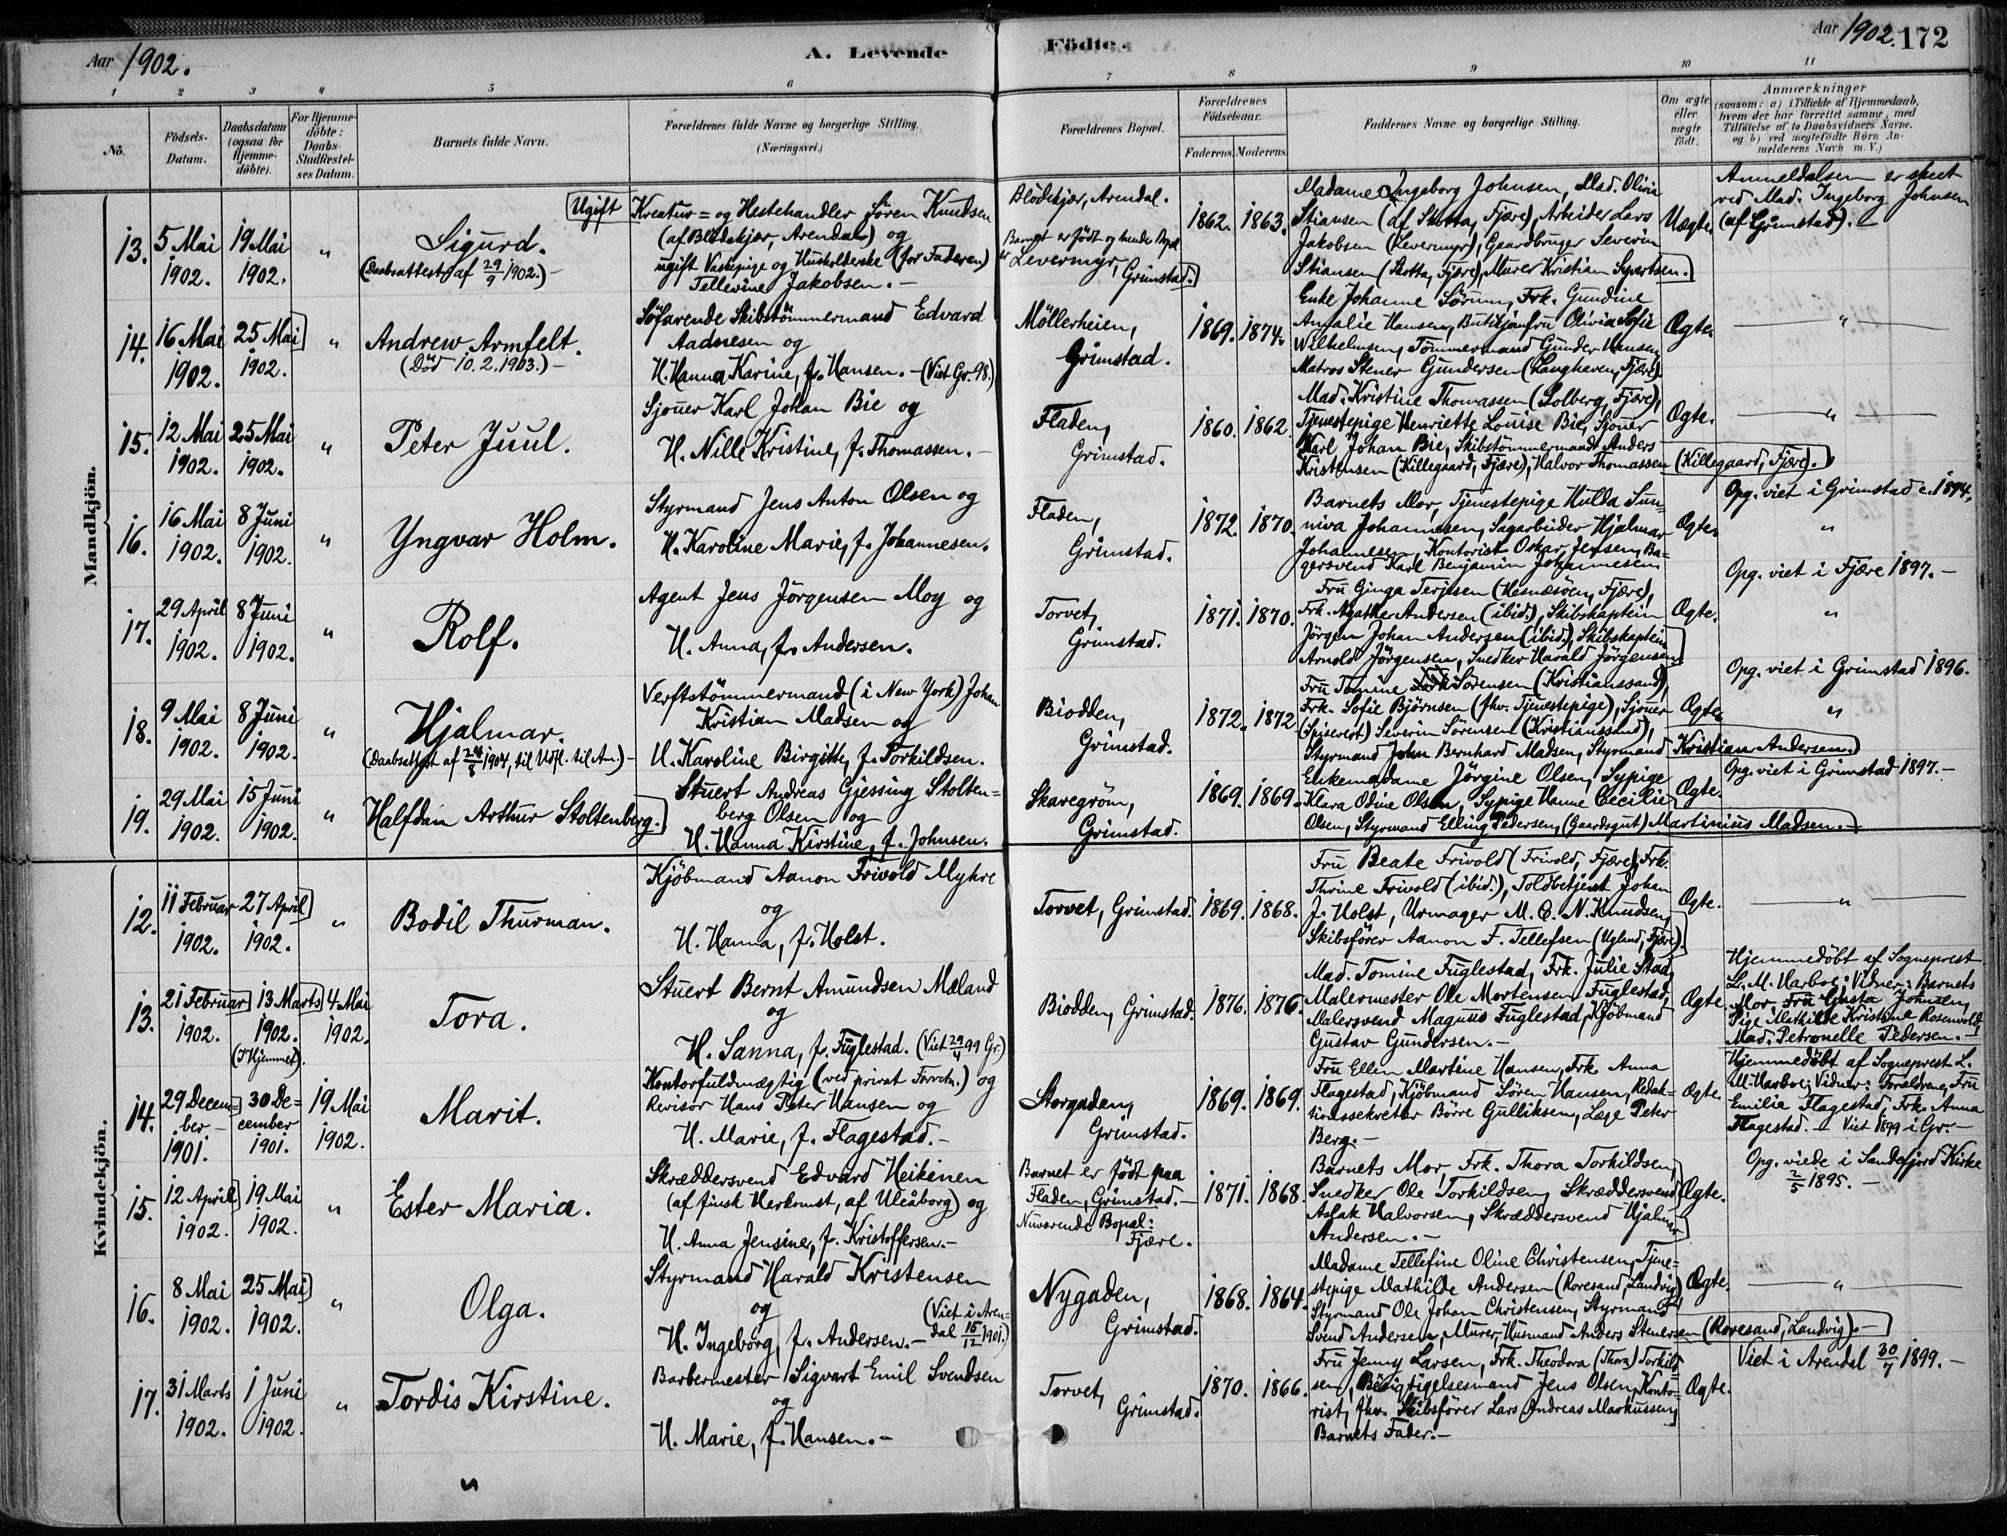 Aar 1902. A. Levende Födte. Aar 1902. 172
1 2 3 4 5 6 7 8 9 10 11
No. Födsels-Datum. Daabsdatum (ogsaa for Hjemmedöbte). For Hjemmedöbte: Daabs-Stadfæstelses Datum. Barnets fulde Navn. Forældrenes fulde Navne og borgerlige Stilling. (Næringsvei.) Forældrenes Bopæl. Forældrenes Födselsaar. Faderens. Moderens. Faddernes Navne og borgerlige Stilling. Om ægte eller uægte födt. Anmærkninger (saasom: a) i Tilfælde af Hjemmedaab, hvem der har forrettet samme, med Tilföielse af to Daabsvidners Navne, og b) ved uægtefödte Börn Anmelderens Navn m. V.)
Mandkjön.
13. 5 Mai 1902. 19 Mai 1902. "
Sigurd.
(Daabsattest af 29/9 1902.) -
Ugift Kreatur= og Hestehandler Sören Knudsen
(af Blödekjær, Arendal) og
ugift Vaskepige og Husholderske (for Faderen)
Tellevine Jakobsen. -
Blödekjær, Arendal.
Barnet er födt og hendes Bopæl er
Levermyr, Grimstad.
1862. 1863.
Madame Ingeborg Johnsen, Mad. Olivia
Stiansen (af Skotta, Fjære), Arbeider Lars
Jakobsen (Levermyr), Gaardbruger Severin
Stiansen (Skotta, Fjære), Murer Kristian Syvertsen.
Uægte.
Anmeldelsen er skeet
ved Mad. Ingeborg Johnsen
(af Grimstad). -
14. 16 Mai 1902. 25 Mai 1902. "
Andrew Armfelt.
(Död 10.2.1903.) -
Söfarende Skibstömmermand Edvard
Aadnesen og
H. Hanna Karine, f. Hansen. - (Viet Gr. 98.)
Möllerheien,
Grimstad.
1869. 1874.
Enke Johanne Sörum, Frk. Gundine
Amalie Hansen, Butikjomfru Olivia Sofie
Wilhelmsen, Tömmermand Gunder Hansen,
Matros Stener Gundersen (Langhaven, Fjære).
Ægte. "
15. 12 Mai 1902. 25 Mai 1902. "
Peter Juul.
Sjouer Karl Johan Bie og
H. Nille Kristine, f. Thomassen. -
Fladen,
Grimstad.
1860. 1862.
Mad. Kristine Thomassen (Solberg, Fjære),
Tjenestepige Henriette Louise Bie, Sjouer
Karl Johan Bie, Skibstömmermand Anders
Kristensen (Killegaard, Fjære), Halvor Thomassen (Killegaard, Fjære).
Ægte. "
16. 16 Mai 1902. 8 Juni 1902. "
Yngvar Holm.
Styrmand Jens Anton Olsen og
H. Karoline Marie, f. Johannesen.
Fladen,
Grimstad.
1872. 1870.
Barnets Mor, Tjenestepige Hulda Sun-
niva Johannesen, Sagarbeider Hjalmar
Johannesen, Kontorist Oskar Jensen, Ba-
gersvend Karl Benjamin Johannesen.
Ægte.
Opg. viet i Grimstad c. 1894.
"
17. 29 April 1902. 8 Juni 1902. "
Rolf.
Agent Jens Jörgensen Moy og
H. Anna, f. Andersen.
Torvet,
Grimstad.
1871. 1870.
Fru Ginga Terjesen (Hesnæsöen, Fjære),
Frk. Agathe Andersen (ibid.), Skibskaptein
Jörgen Johan Andersen (ibid.), Skibskaptein
Arnold Jörgensen, Snedker Harald Jörgensen.
Ægte.
Opg. viet i Fjære 1897. -
"
18. 9 Mai 1902. 8 Juni 1902. "
Hjalmar.
(Daabsattest af 24/8 1904, til Udfl. til Am.) -
Verftstömmermand (i New York) Johan
Kristian Madsen og
H. Karoline Birgitte, f. Torkildsen.
Biodden,
Grimstad.
1872. 1872
Fru Tomine Sörensen (Kristianssand),
Frk. Sofie Björnsen (fhv. Tjenestepige), Sjouer
(Spisevert) Severin Sörensen (Kristianssand),
Styrmand John Bernhard Madsen, Styrmand Kristian Andersen.
Ægte.
Opg. viet i Grimstad 1896.
"
19. 29 Mai 1902. 15 Juni 1902. "
Halfdan Arthur Stoltenberg.
Stuert Andreas Gjessing Stolten=
berg Olsen og
H. Hanna Kirstine, f. Johnsen.
Skaregröm,
Grimstad.
1869. 1869.
Enkemadame Jörgine Olsen, Sypige
Klara Odine Olsen, Sypige Hanne Cecilie
Olsen, Styrmand Elling Pedersen, (Gaardsgut) Martinius Madsen.
Ægte.
Opg. viet i Grimstad 1897. -
Kvindekjön.
12. 11 Februar 1902. 27 April 1902. "
Bodil Thurman.
Kjöbmand Aanon Frivold Myhre
og
H. Hanna, f. Holst.
Torvet, Grimstad.
1869. 1868.
Fru Beate Frivold (Frivold, Fjære), Frk.
Thrine Frivold (ibid.), Toldbetjent Johan
J. Holst, Urmager M. C. N. Knudsen,
Skibsförer Aanon F. Tellefsen (Ugland, Fjære).
Ægte. "
13. 21 Februar 1902. 13 Marts 1902. (I Hjemmet). 4 Mai 1902.
Tora.
Stuert Bernt Amundsen Mæland
og
H. Sanna, f. Fuglestad. (Viet 29/4 99 Gr.)
Biodden, Grimstad.
1876. 1876.
Mad. Tomine Fuglestad, Frk. Julie Stad,
Malermester Ole Mortensen Fuglestad,
Malersvend Magnus Fuglestad, Kjöbmand
Gustav Gundersen. -
Ægte
Hjemmedöbt af Sogneprest
L. M. Harboe; Vidner: Barnets
Mor, Fru Gusta Johnsen,
Pige Mathilde Kristine Rosenvold,
Mad. Petronelle Pedersen. -
14. 29 Decem-ber 1901. 30 De=cember 1901. 19 Mai 1902.
Marit.
Kontorfuldmægtig (ved privat Forretn.) og
Revisor Hans Peter Hansen og
H. Marie, f. Flagestad. -
Storgaden,
Grimstad.
1869. 1869.
Fru Ellen Martine Hansen, Frk. Anna
Flagestad, Kjöbmand Sören Hansen, Redak-
tionssekretær Börre Gulliksen, Læge Peter
Berg. -
Ægte.
Hjemmedöbt af Sogneprest L.
M. Harboe; Vidner: Forældrene, Fru
Emilie Flagestad, Frk. Anna
Flagestad. - Viet 1899 i Gr. -
15. 12 April 1902. 19 Mai 1902. "
Ester Maria.
Skræddersvend Edvard Heikinen
(af finsk Herkomst, af Uleåborg) og
H. Anna Jensine, f. Kristoffersen. -
Barnet er födt paa
Fladen, Grimstad. -
Nuværende Bopæl:
Fjære.
1871. 1868.
Barnets Mor, Frk. Thora Torkildsen,
Snedker Ole Torkildsen, Skræddersvend
Aslak Halvorsen, Skræddersvend Hjalmar
Andersen. -
Ægte.
Opg. viede i Sandefjord Kirke
2/5 1895. -
16. 8 Mai 1902. 25 Mai 1902. "
Olga.
Styrmand Harald Kristensen
og (Viet i Aren=
H. Ingeborg, f. Andersen. - dal 15/12 1901.)
Nygaden,
Grimstad.
1868. 1864.
Madame Tellefine Oline Christensen, Tjene=
stepige Mathilde Andersen (Roresand, Landvig),
Styrmand Ole Johan Christensen, Styrmand
Svend Andersen, Murer, Husmand Anders Stenersen (Roresand, Landvig). -
Ægte. "
17. 31 Marts 1902. 1 Juni 1902. "
Tordis Kirstine.
Barbermester Sigvart Emil Svendsen
og
H. Marie, f. Hansen. -
Torvet,
Grimstad.
1870. 1866.
Fru Jenny Larsen, Frk. Theodora (Thora) Torkild-
sen, Besigtigelsesmand Jens Olsen, Konto-
rist, fhv. Skibsförer Lars Andreas Markussen,
Barnets Fader. -
Ægte.
Viet i Arendal 30/7 1899. -